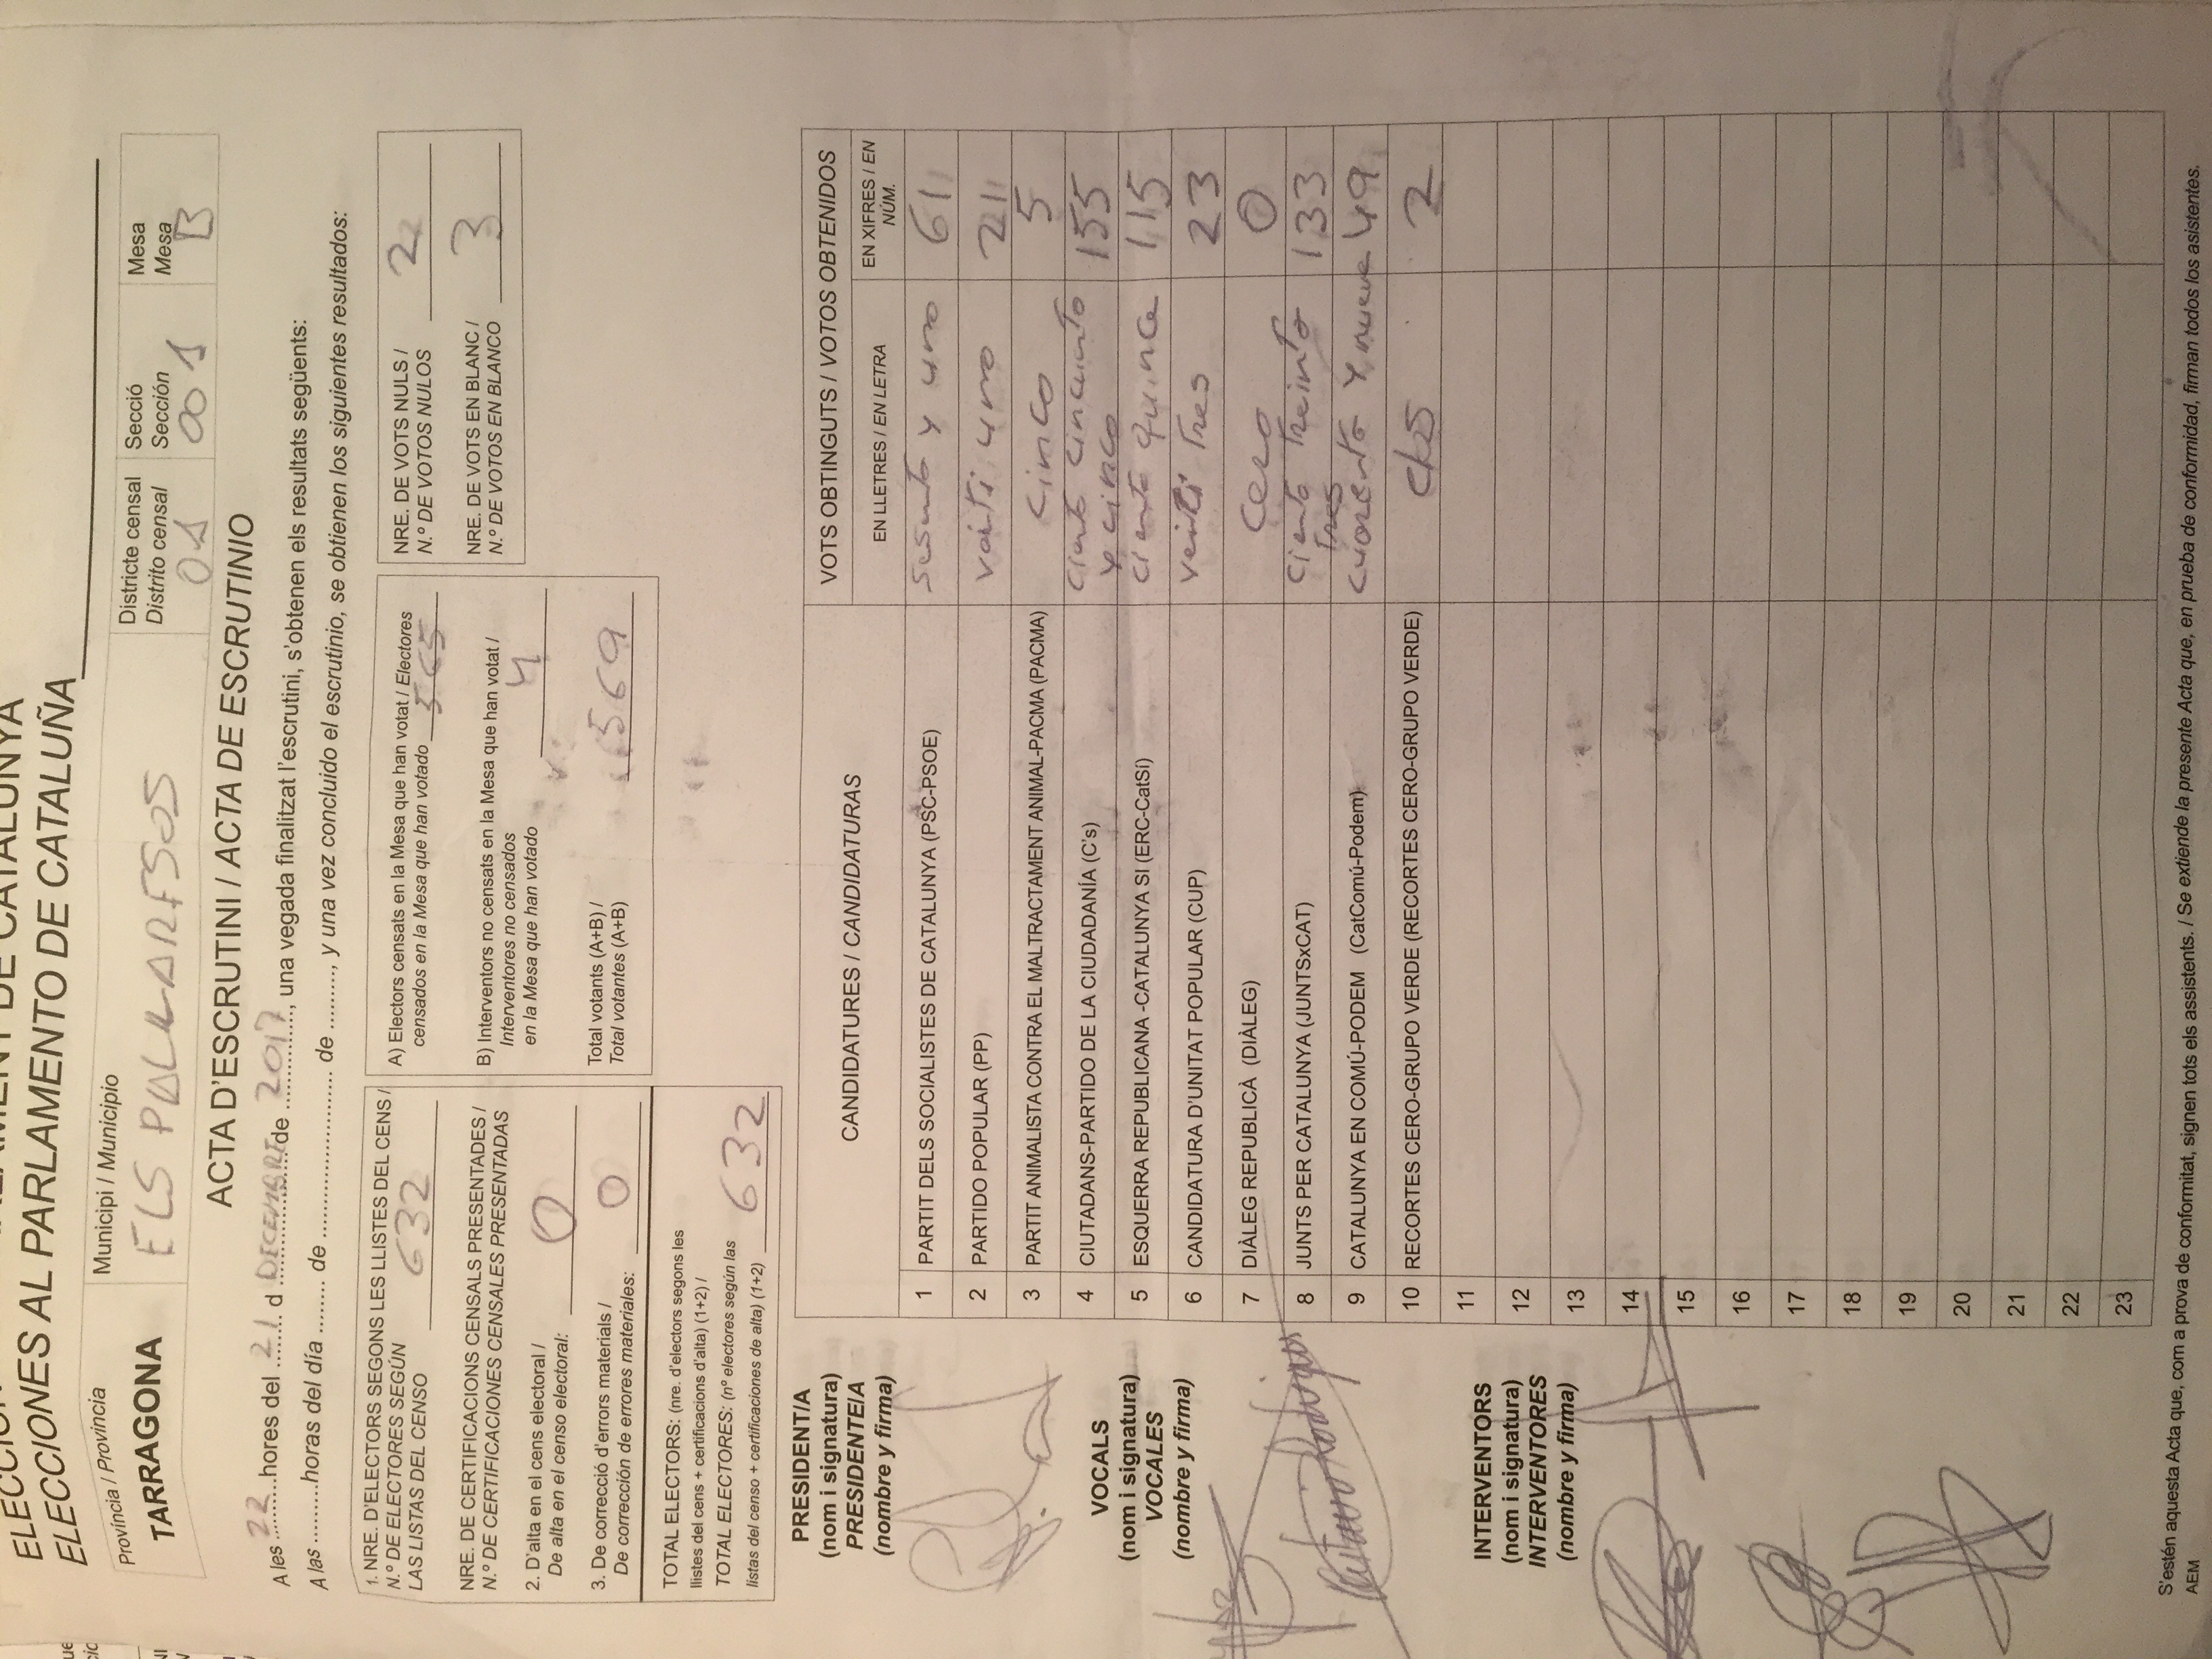 PARLAMENT DE CATALUNYA
ELECCIONES AL PARLAMENTO DE CATALUÑA
Província / Provincia
TARRAGONA
Municipi / Municipio
ELS PALLARESOS
Districte censal
Distrito censal
01
Secció
Sección
001
Mesa
Mesa
B
ACTA D'ESCRUTINI / ACTA DE ESCRUTINIO
A les 22 hores del 21 d DECEMBRE de 2017, una vegada finalitzat l'escrutini, s'obtenen els resultats següents:
A las .........horas del día ........ de .......................... de ........., y una vez concluido el escrutinio, se obtienen los siguientes resultados:
1. NRE. D'ELECTORS SEGONS LES LLISTES DEL CENS /
N.º DE ELECTORES SEGÚN
LAS LISTAS DEL CENSO 632
NRE. DE CERTIFICACIONS CENSALS PRESENTADES /
N.º DE CERTIFICACIONES CENSALES PRESENTADAS
2. D'alta en el cens electoral /
De alta en el censo electoral: 0
3. De correcció d'errors materials /
De corrección de errores materiales: 0
TOTAL ELECTORS: (nre. d'electors segons les
llistes del cens + certificacions d'alta) (1+2) /
TOTAL ELECTORES: (nº electores según las
listas del censo + certificaciones de alta) (1+2) 632
A) Electors censats en la Mesa que han votat / Electores
censados en la Mesa que han votado 565
B) Interventors no censats en la Mesa que han votat /
Interventores no censados
en la Mesa que han votado 4
Total votants (A+B) /
Total votantes (A+B) 569
NRE. DE VOTS NULS /
N.º DE VOTOS NULOS 2
NRE. DE VOTS EN BLANC /
N.º DE VOTOS EN BLANCO 3
PRESIDENT/A
(nom i signatura)
PRESIDENTE/A
(nombre y firma)
VOCALS
(nom i signatura)
VOCALES
(nombre y firma)
Rodrigues
INTERVENTORS
(nom i signatura)
INTERVENTORES
(nombre y firma)
CANDIDATURES / CANDIDATURAS
VOTS OBTINGUTS / VOTOS OBTENIDOS
EN LLETRES / EN LETRA
EN XIFRES / EN
NÚM.
1 PARTIT DELS SOCIALISTES DE CATALUNYA (PSC-PSOE) sesenta y uno 61
2 PARTIDO POPULAR (PP) veinti uno 21
3 PARTIT ANIMALISTA CONTRA EL MALTRACTAMENT ANIMAL-PACMA (PACMA) cinco 5
4 CIUTADANS-PARTIDO DE LA CIUDADANÍA (C's) ciento cincuenta y cinco 155
5 ESQUERRA REPUBLICANA -CATALUNYA SI (ERC-CatSí) ciento quince 115
6 CANDIDATURA D'UNITAT POPULAR (CUP) veinti Tres 23
7 DIÀLEG REPUBLICÀ (DIÀLEG) cero 0
8 JUNTS PER CATALUNYA (JUNTSxCAT) ciento Treinta Tres 133
9 CATALUNYA EN COMÚ-PODEM (CatComú-Podem) cuarenta y nueve 49
10 RECORTES CERO-GRUPO VERDE (RECORTES CERO-GRUPO VERDE) dos 2
11
12
13
14
15
16
17
18
19
20
21
22
23
S'estén aquesta Acta que, com a prova de conformitat, signen tots els assistents. / Se extiende la presente Acta que, en prueba de conformidad, firman todos los asistentes.
AEM